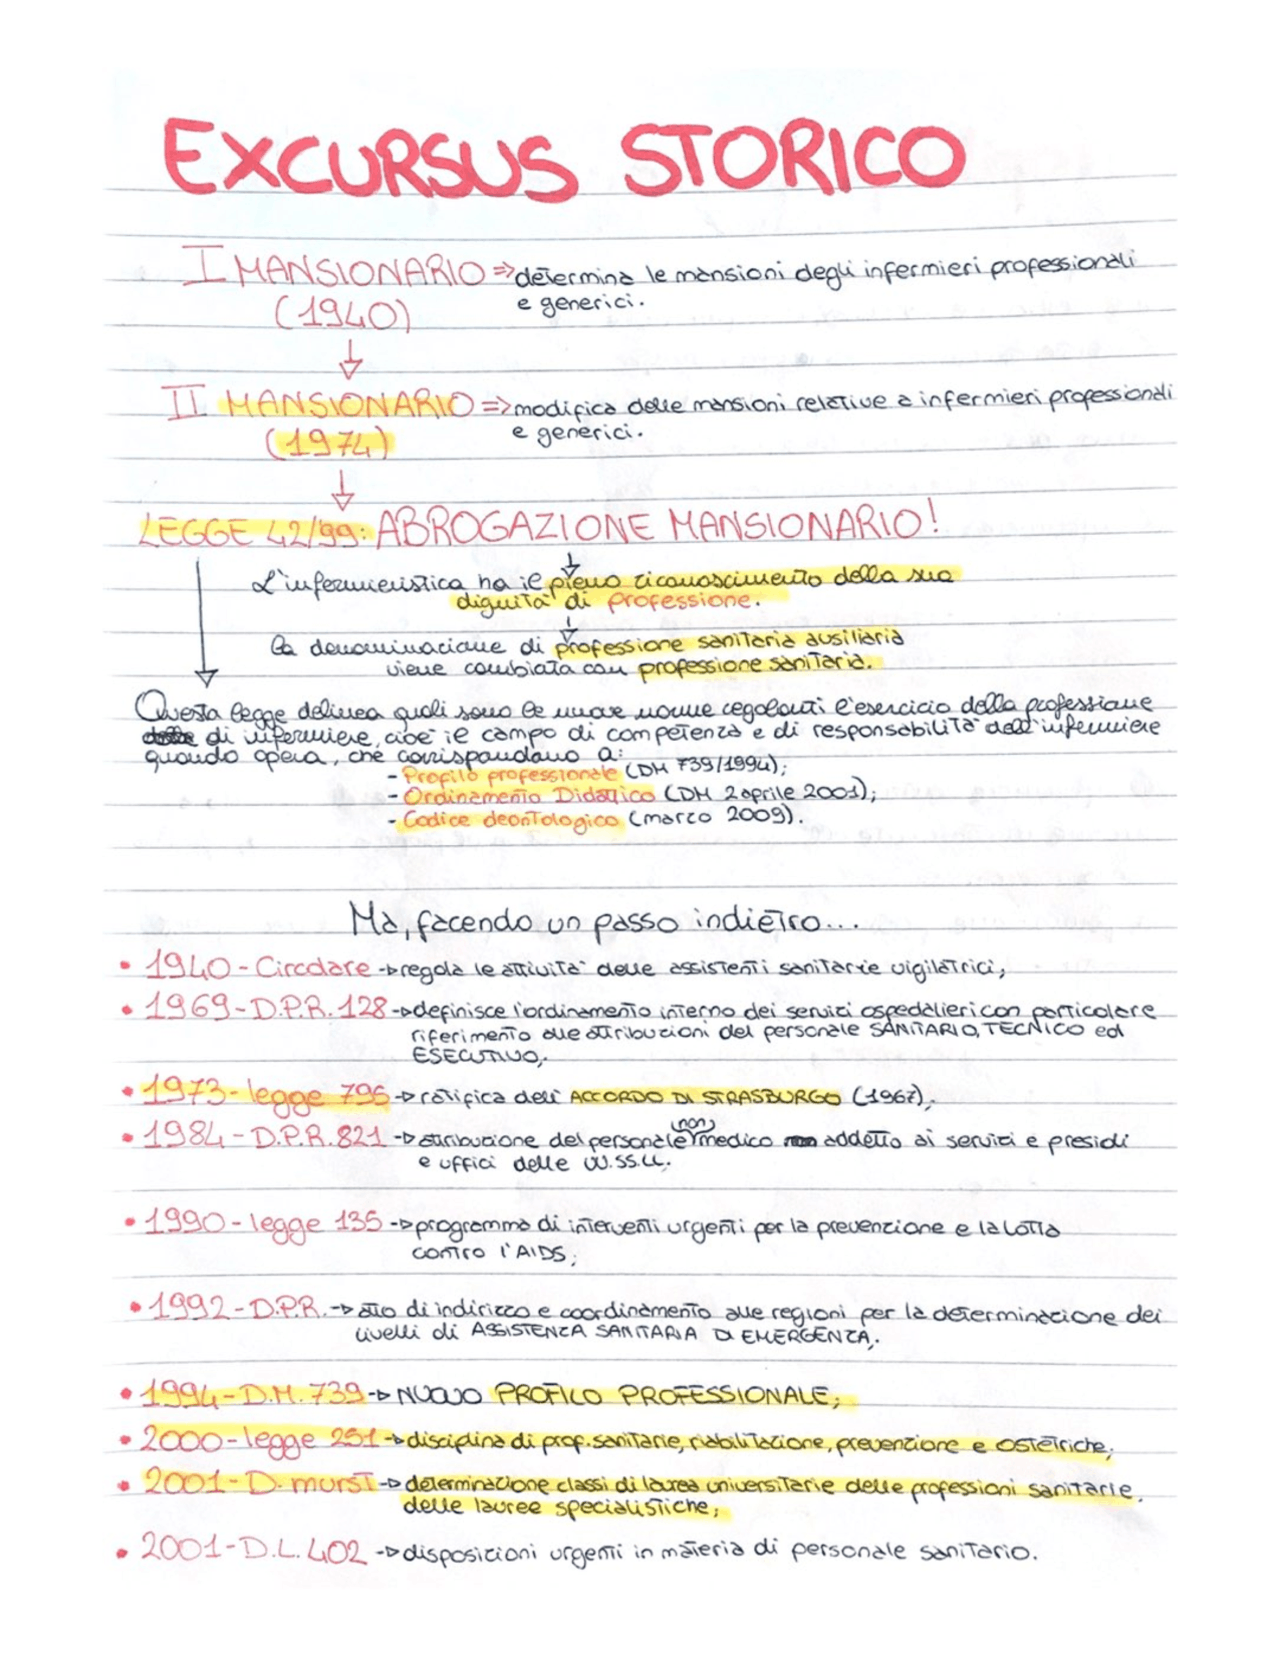 EXCURSUS STORICO
I MANSIONARIO => determina le mansioni degli infermieri professionali
(1940) e generici.
II MANSIONARIO => modifica delle mansioni relative a infermieri professionali
(1974) e generici.
LEGGE 42/99: ABROGAZIONE MANSIONARIO!
L'infermieristica ha il pieno riconoscimento della sua
dignità di professione.
La denominazione di professione sanitaria ausiliaria
viene cambiata con professione sanitaria.
Questa legge delinea quali sono le nuove norme regolanti l'esercizio della professione
di infermiere, cioè il campo di competenza e di responsabilità dell'infermiere
quando opera, che corrispondano a:
- Profilo professionale (DM 739/1994);
- Ordinamento Didattico (DM 2 aprile 2001);
- Codice deontologico (marzo 2009).
Ma, facendo un passo indietro...
• 1940 - Circolare -> regola le attività delle assistenti sanitarie vigilatrici;
• 1969 - D.P.R. 128 -> definisce l'ordinamento interno dei servizi ospedalieri con particolare
riferimento alle attribuzioni del personale SANITARIO, TECNICO ed
ESECUTIVO;
• 1973 - legge 795 -> ratifica dell'ACCORDO DI STRASBURGO (1967);
• 1984 - D.P.R. 821 -> attribuzione del personale non medico addetto ai servizi e presidi
e uffici delle UU.SS.LL.
• 1990 - legge 135 -> programma di interventi urgenti per la prevenzione e la lotta
contro l'AIDS;
• 1992 - D.P.R. -> atto di indirizzo e coordinamento alle regioni per la determinazione dei
livelli di ASSISTENZA SANITARIA DI EMERGENZA.
• 1994 - D.M. 739 -> NUOVO PROFILO PROFESSIONALE;
• 2000 - legge 251 -> disciplina di prof. sanitarie, riabilitazione, prevenzione e ostetriche;
• 2001 - D. murst -> determinazione classi di laurea universitarie delle professioni sanitarie,
delle lauree specialistiche;
• 2001 - D.L. 402 -> disposizioni urgenti in materia di personale sanitario.